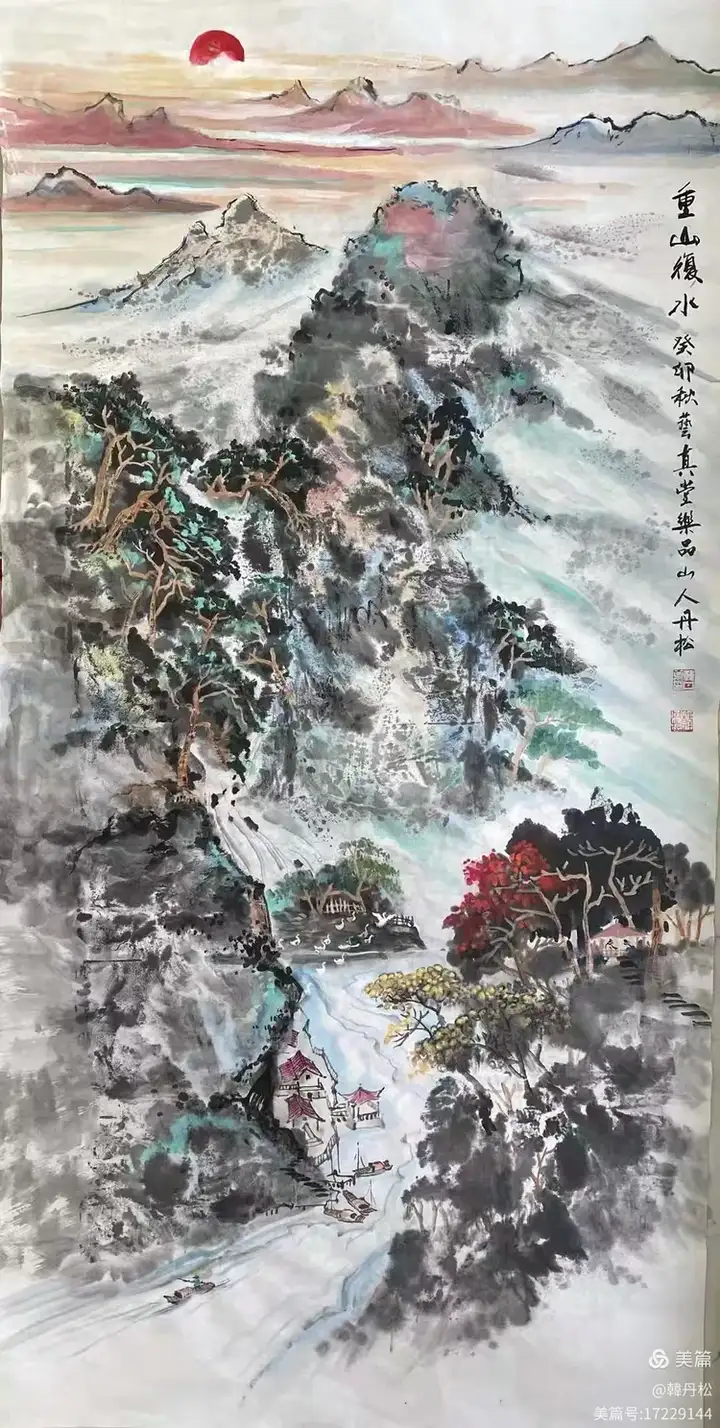 重山複水 癸卯秋藝真堂樂品山人丹松
美篇
@韓丹松
美篇号:17229144